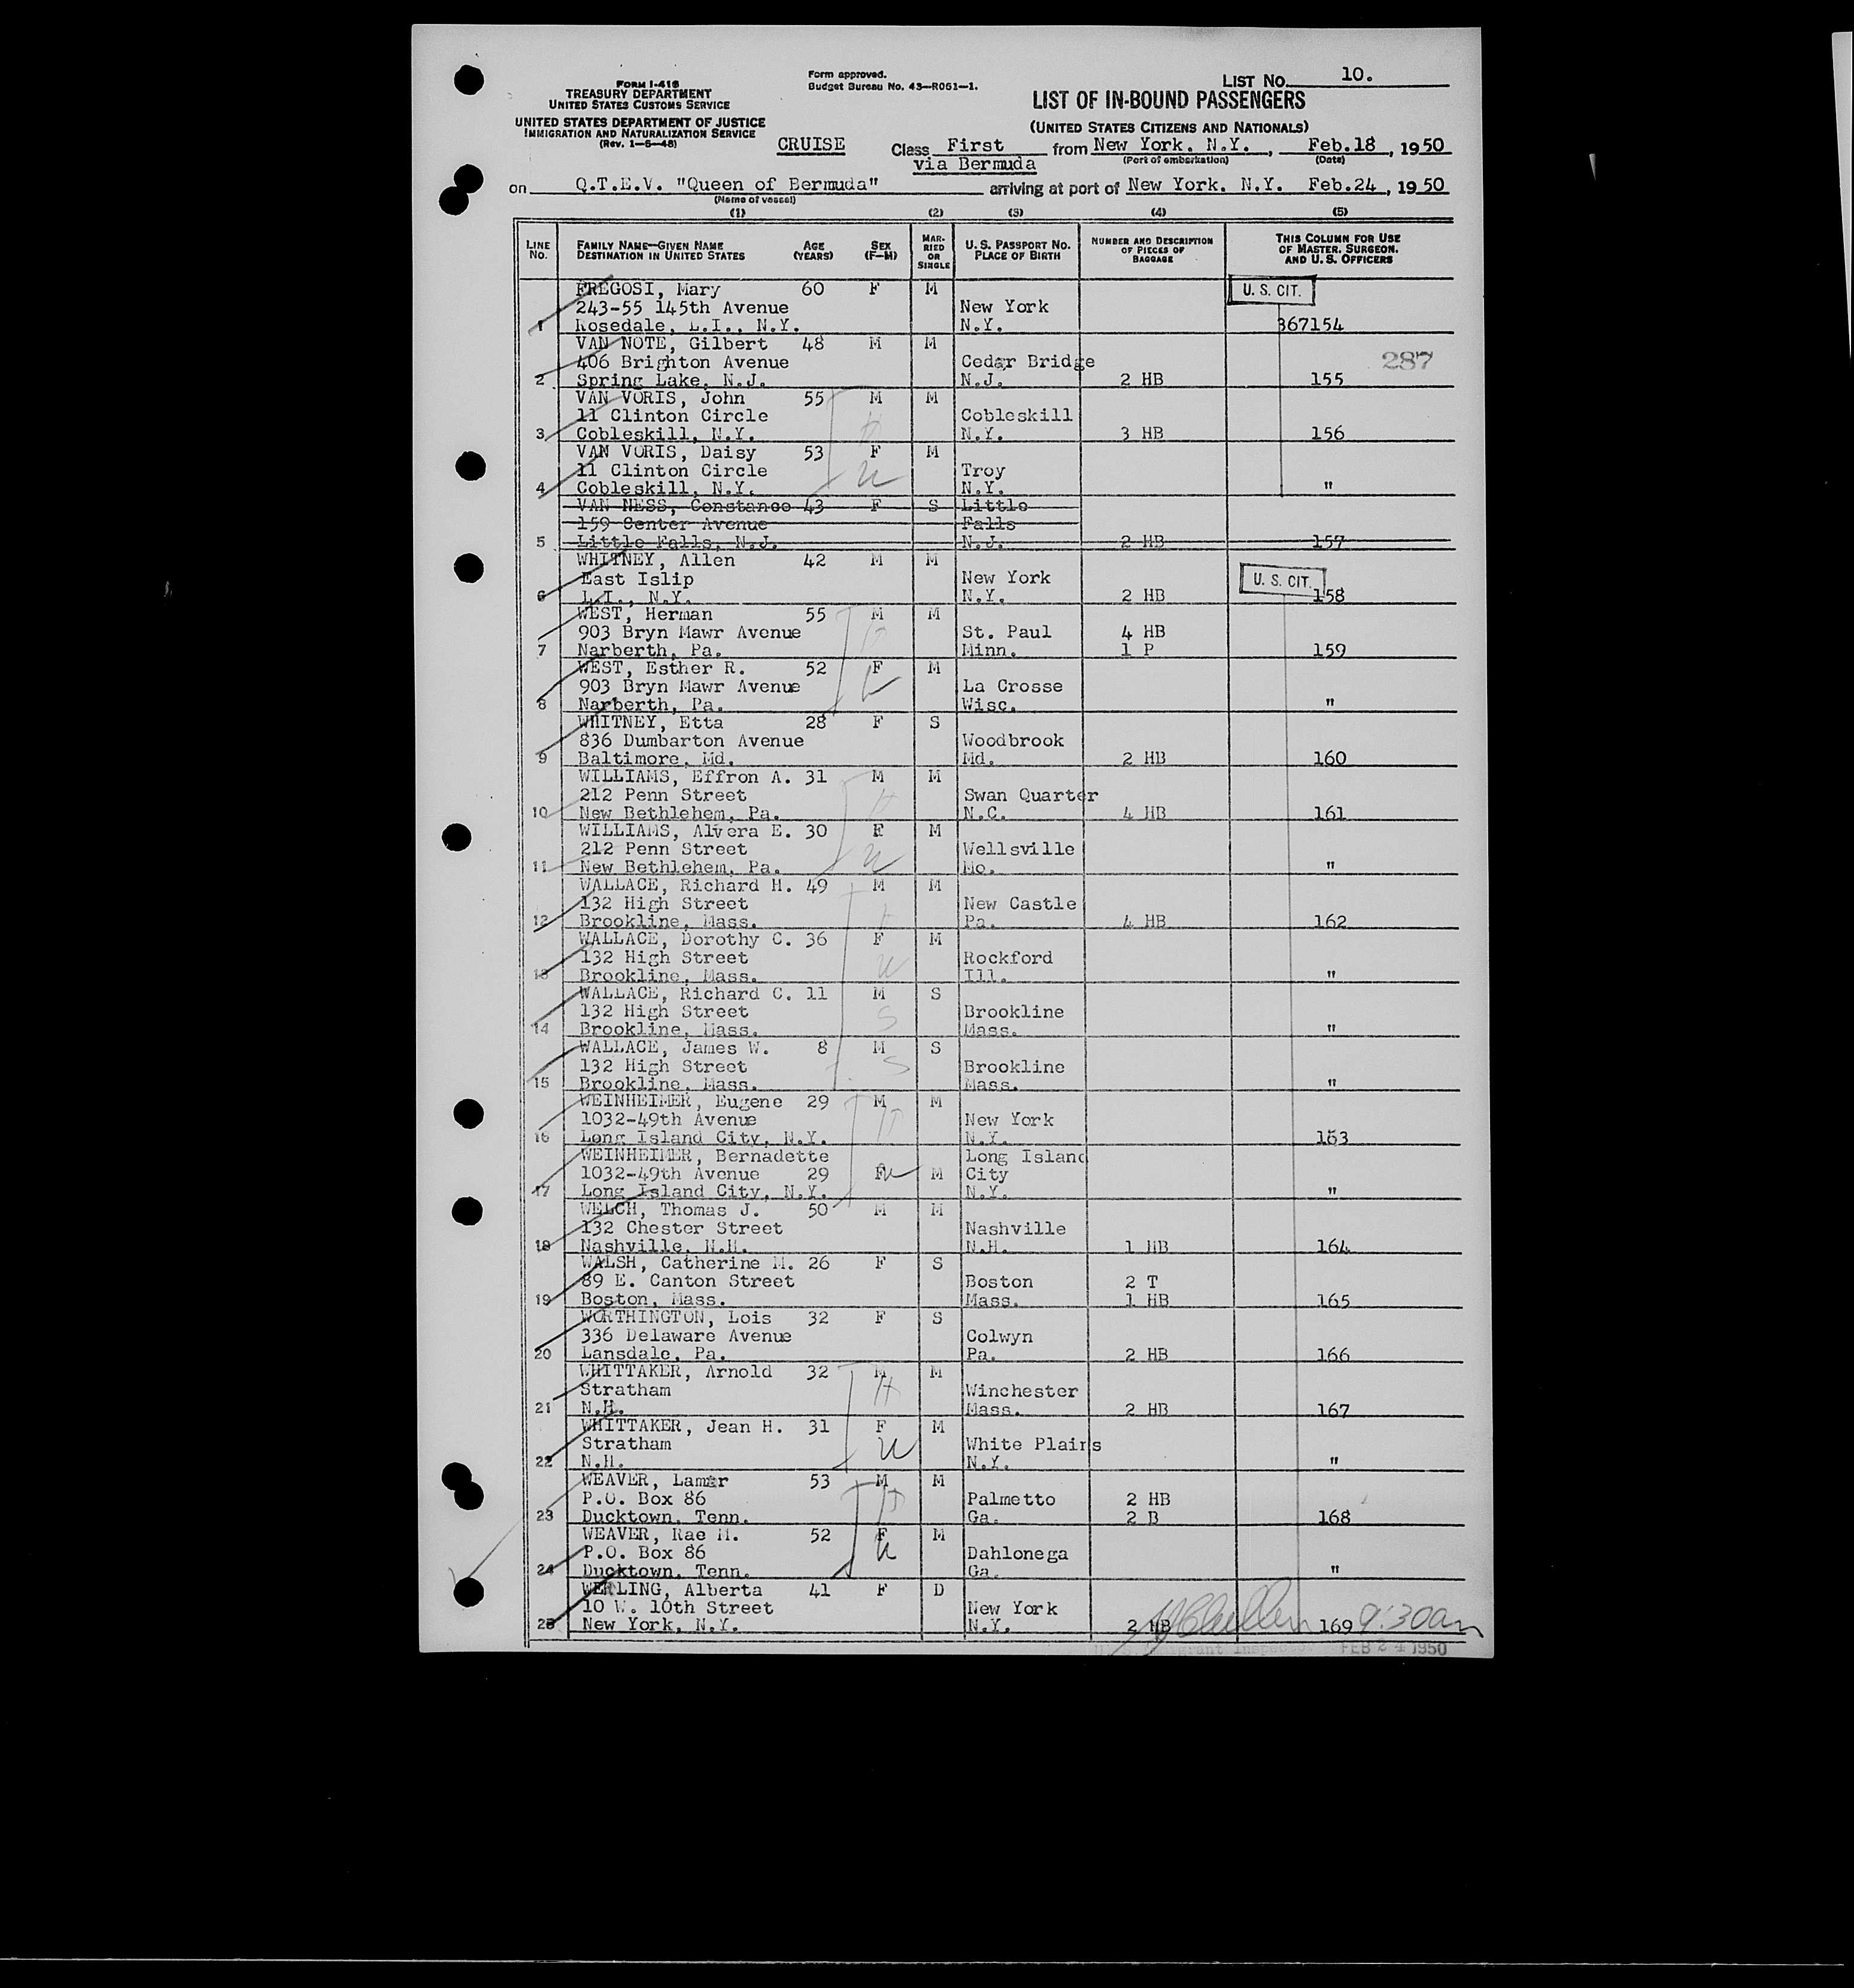 FORM I-418
TREASURY DEPARTMENT
UNITED STATES CUSTOMS SERVICE
UNITED STATES DEPARTMENT OF JUSTICE
IMMIGRATION AND NATURALIZATION SERVICE
(Rev. 1-5-48)
Form approved.
Budget Bureau No. 43-R051-1.
LIST No. 10.
LIST OF IN-BOUND PASSENGERS
(UNITED STATES CITIZENS AND NATIONALS)
CRUISE Class First from New York. N.Y., Feb.18, 1950
via Bermuda (Port of embarkation) (Date)
on Q.T.E.V. "Queen of Bermuda" arriving at port of New York. N.Y. Feb.24, 1950
(Name of vessel)
(1) (2) (3) (4) (5)
LINE No. FAMILY NAME—GIVEN NAME DESTINATION IN UNITED STATES AGE (YEARS) SEX (F-M) MARRIED OR SINGLE U. S. PASSPORT NO. PLACE OF BIRTH NUMBER AND DESCRIPTION OF PIECES OF BAGGAGE THIS COLUMN FOR USE OF MASTER, SURGEON, AND U. S. OFFICERS
FREGOSI, Mary 60 F M U. S. CIT.
243-55 145th Avenue New York
1 Rosedale, L.I., N.Y. N.Y. 367154
VAN NOTE, Gilbert 48 M M
406 Brighton Avenue Cedar Bridge 287
2 Spring Lake, N.J. N.J. 2 HB 155
VAN VORIS, John 55 M M
11 Clinton Circle Cobleskill H
3 Cobleskill, N.Y. N.Y. 3 HB 156
VAN VORIS, Daisy 53 F M
11 Clinton Circle Troy
4 Cobleskill, N.Y. N.Y. "
VAN NESS, Constance 43 F S Little
159 Center Avenue Falls
5 Little Falls, N.J. N.J. 2 HB 157
WHITNEY, Allen 42 M M
East Islip New York U. S. CIT.
6 L.I., N.Y. N.Y. 2 HB 158
WEST, Herman 55 M M
903 Bryn Mawr Avenue St. Paul 4 HB
7 Narberth, Pa. Minn. 1 P 159
WEST, Esther R. 52 F M
903 Bryn Mawr Avenue La Crosse
8 Narberth, Pa. Wisc. "
WHITNEY, Etta 28 F S
836 Dumbarton Avenue Woodbrook
9 Baltimore, Md. Md. 2 HB 160
WILLIAMS, Effron A. 31 M M
212 Penn Street Swan Quarter
10 New Bethlehem, Pa. N.C. 4 HB 161
WILLIAMS, Alvera E. 30 F M
212 Penn Street Wellsville
11 New Bethlehem, Pa. Mo. "
WALLACE, Richard H. 49 M M
132 High Street New Castle
12 Brookline, Mass. Pa. 4 HB 162
WALLACE, Dorothy C. 36 F M
132 High Street Rockford
13 Brookline, Mass. Ill. "
WALLACE, Richard C. 11 M S
132 High Street S Brookline
14 Brookline, Mass. Mass. "
WALLACE, James W. 8 M S
132 High Street S Brookline
15 Brookline, Mass. Mass. "
WEINHEIMER, Eugene 29 M M
1032-49th Avenue New York
16 Long Island City, N.Y. N.Y. 163
WEINHEIMER, Bernadette Long Island
1032-49th Avenue 29 F M City
17 Long Island City, N.Y. N.Y. "
WELCH, Thomas J. 50 M M
132 Chester Street Nashville
18 Nashville, N.H. N.H. 1 HB 164
WALSH, Catherine M. 26 F S
89 E. Canton Street Boston 2 T
19 Boston, Mass. Mass. 1 HB 165
WORTHINGTON, Lois 32 F S
336 Delaware Avenue Colwyn
20 Lansdale, Pa. Pa. 2 HB 166
WHITTAKER, Arnold 32 M M
Stratham H Winchester
21 N.H. Mass. 2 HB 167
WHITTAKER, Jean H. 31 F M
Stratham White Plains
22 N.H. N.Y. "
WEAVER, Lamar 53 M M
P.O. Box 86 H Palmetto 2 HB
23 Ducktown, Tenn. Ga. 2 B 168
WEAVER, Rae M. 52 F M
P.O. Box 86 Dahlonega
24 Ducktown, Tenn. Ga. "
WERLING, Alberta 41 F D
10 W. 10th Street New York
25 New York, N.Y. N.Y. 2 HB 169 9:30am
Immigrant Inspector FEB 24 1950